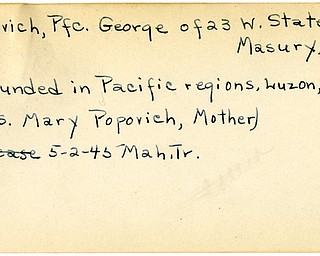 vich, Pfc. George of 23 W. State
Masury,
unded in Pacific regions, Luzon,
s. Mary Popovich, Mother)
ease 5-2-45 Mah. Tr.